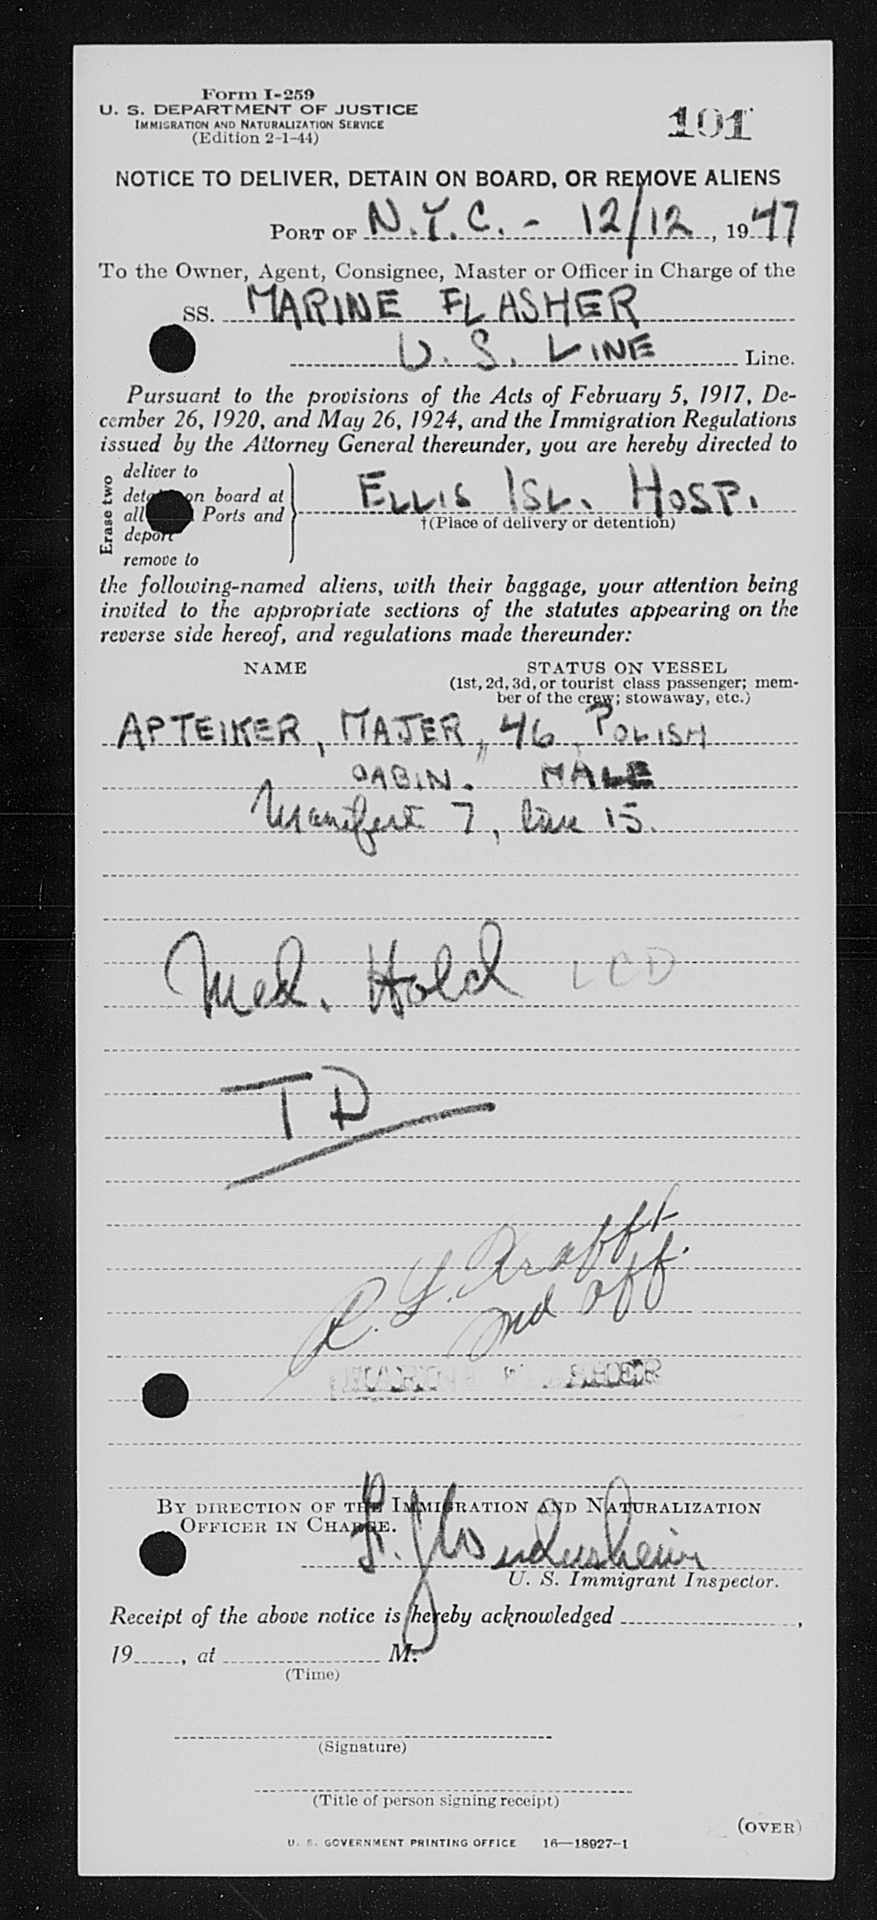 Form I-259
U. S. DEPARTMENT OF JUSTICE
IMMIGRATION AND NATURALIZATION SERVICE
(Edition 2-1-44)
101
NOTICE TO DELIVER, DETAIN ON BOARD, OR REMOVE ALIENS
PORT OF N.Y.C. - 12/12, 1947
To the Owner, Agent, Consignee, Master or Officer in Charge of the
SS. MARINE FLASHER
U. S. LINE Line.
Pursuant to the provisions of the Acts of February 5, 1917, De-
cember 26, 1920, and May 26, 1924, and the Immigration Regulations
issued by the Attorney General thereunder, you are hereby directed to
Erase two
deliver to
on board at
all Ports and
deport
remove to
ELLIS ISL. HOSP.
†(Place of delivery or detention)
the following-named aliens, with their baggage, your attention being
invited to the appropriate sections of the statutes appearing on the
reverse side hereof, and regulations made thereunder:
NAME STATUS ON VESSEL
(1st, 2d, 3d, or tourist class passenger; mem-
ber of the crew; stowaway, etc.)
APTEIKER, MAJER, 46, POLISH
CABIN. MALE
Manifest 7, line 15.
Med. Hold LCD
TD
R. L. Krafft
2nd Off.
By direction of the Immigration and Naturalization
Officer in Charge.
U. S. Immigrant Inspector.
Receipt of the above notice is hereby acknowledged ,
19 , at M.
(Time)
(Signature)
(Title of person signing receipt)
(OVER)
U. S. GOVERNMENT PRINTING OFFICE 16—18927-1